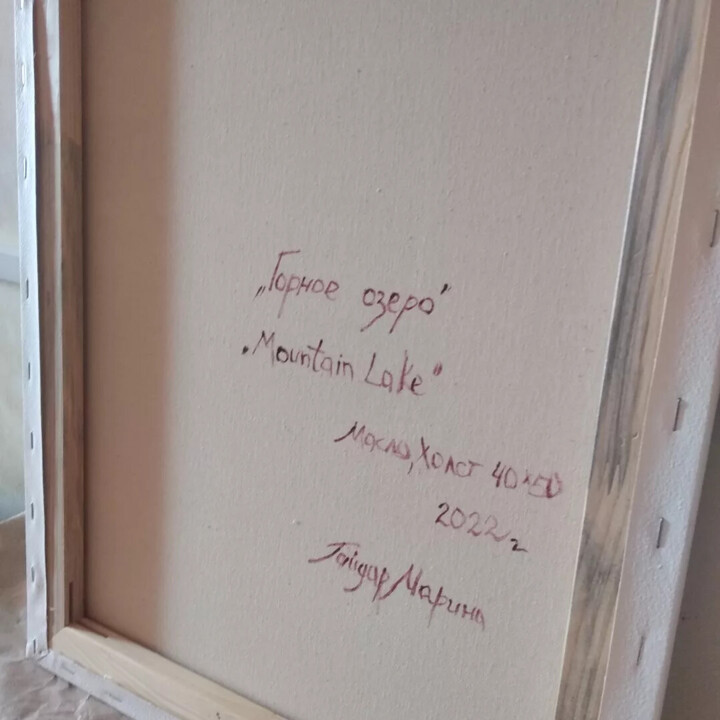 „Горное озеро"
„Mountain Lake"
Масло, Холст 40×50
2022г
Гайдар Марина